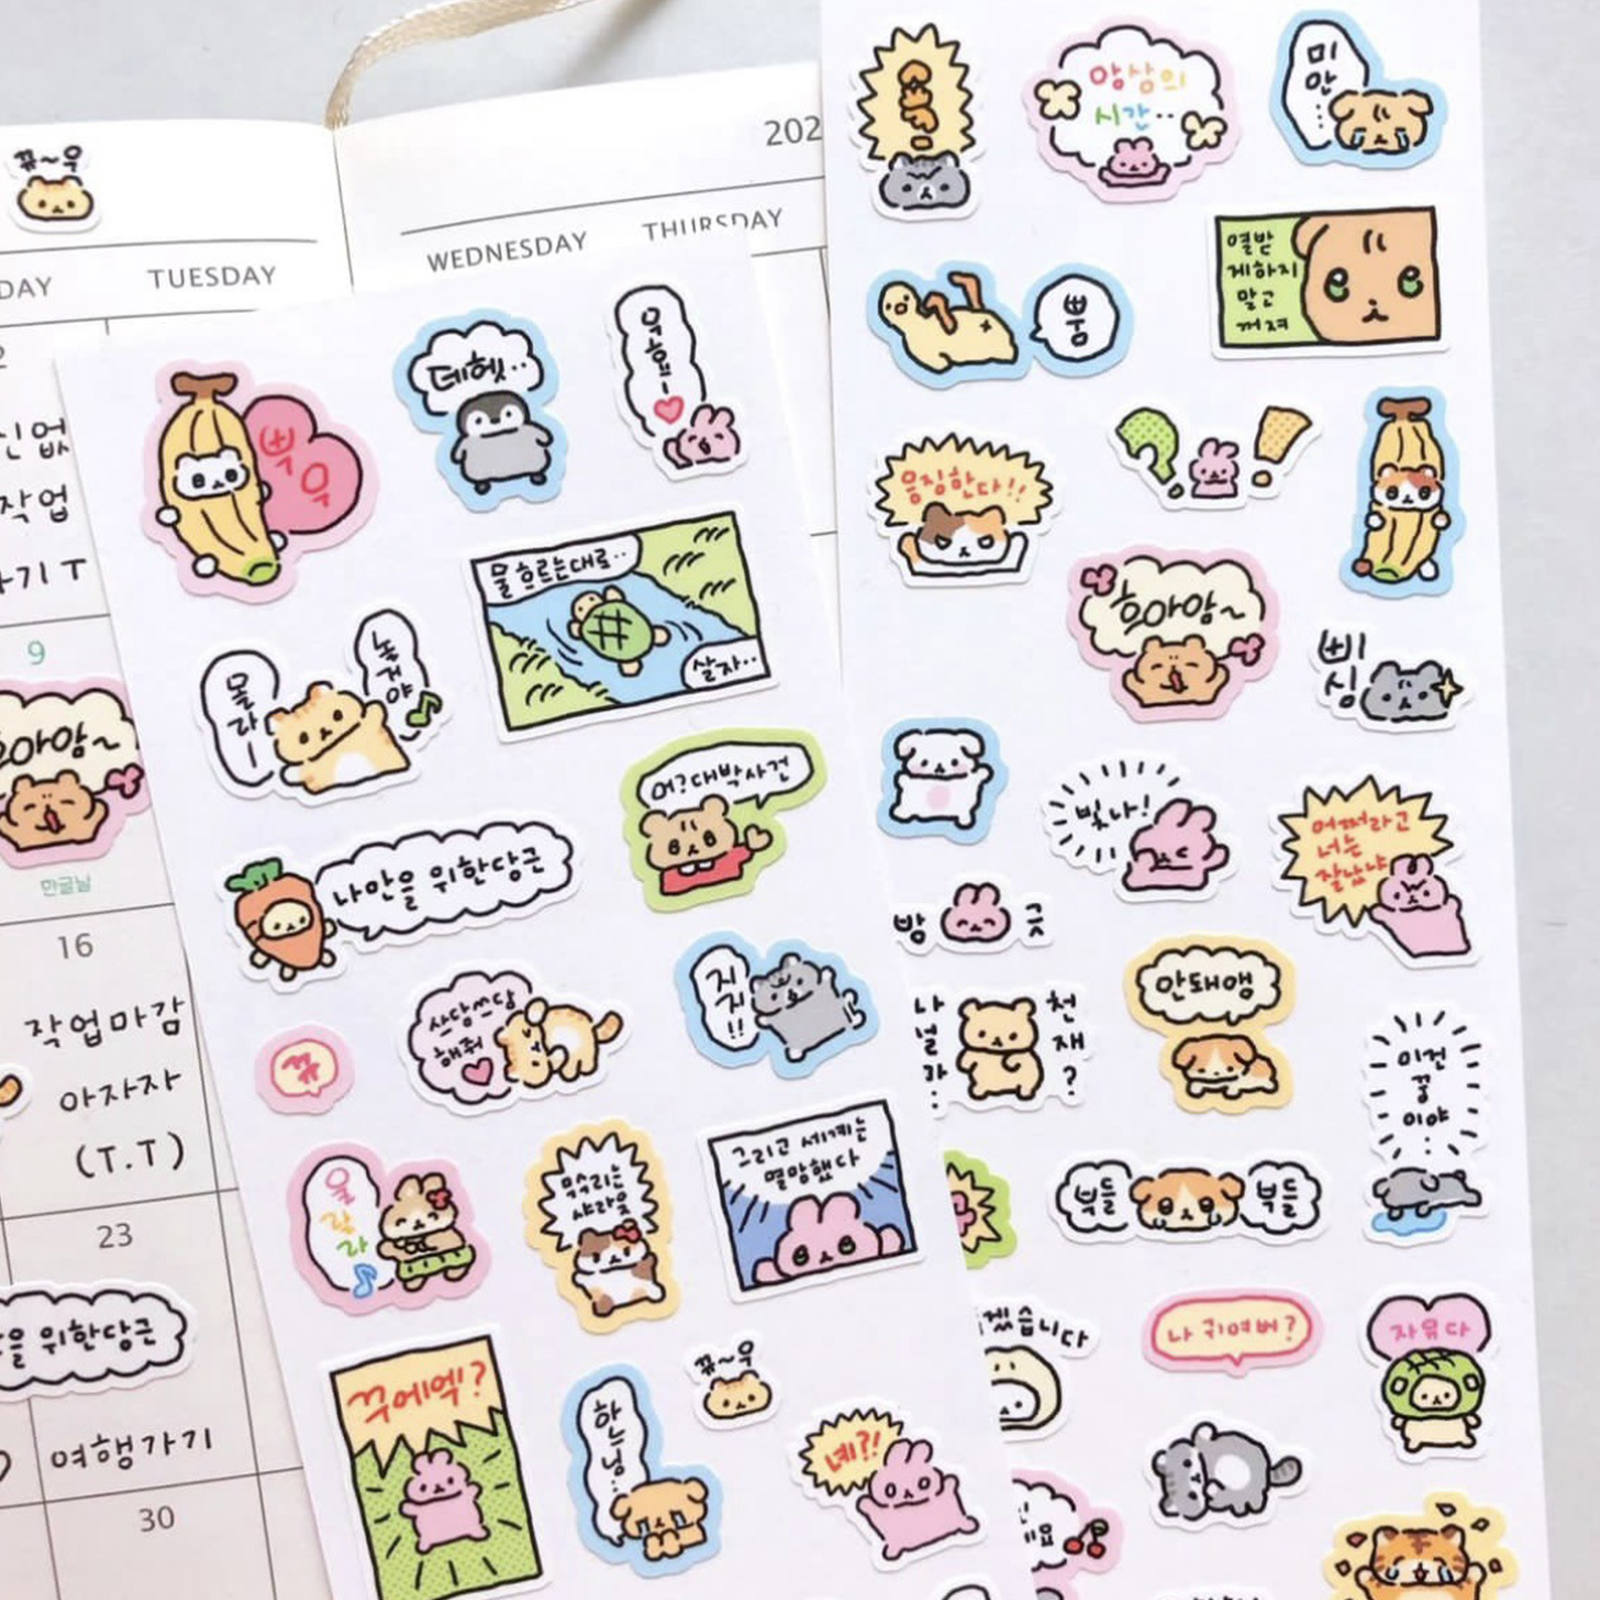 뀨~우
202
TUESDAY
WEDNESDAY
THURSDAY
DAY
9
호아암~
만글님
16
작업마감
아자자
(T.T)
23
을 위한당근
여행가기
30
작업
기 T
쁘
우
데헷..
우
효
ー
몰
라
ー
놀
거야
물 흐르는대로..
살자..
어? 대박사건
나만을 위한당근
뀨
쓰담쓰담
해줘
지
지!!
울
라
라
묵수리는
샤라웃
그리고 세계는
멸망했다
꾸에엑?
하
느
님...
뀨~우
녜?!
앙상의
시간..
미
안...
뿜
열받
게하지
말고
꺼져
응징한다!!
호아암~
삐
싱
빛나!
어쩌라고
너는
잘났냐
방
긋
나
널
라...
천
재
?
안돼앵
이건
꿈
이야
부들
부들
겠습니다
나 귀여버?
자유다